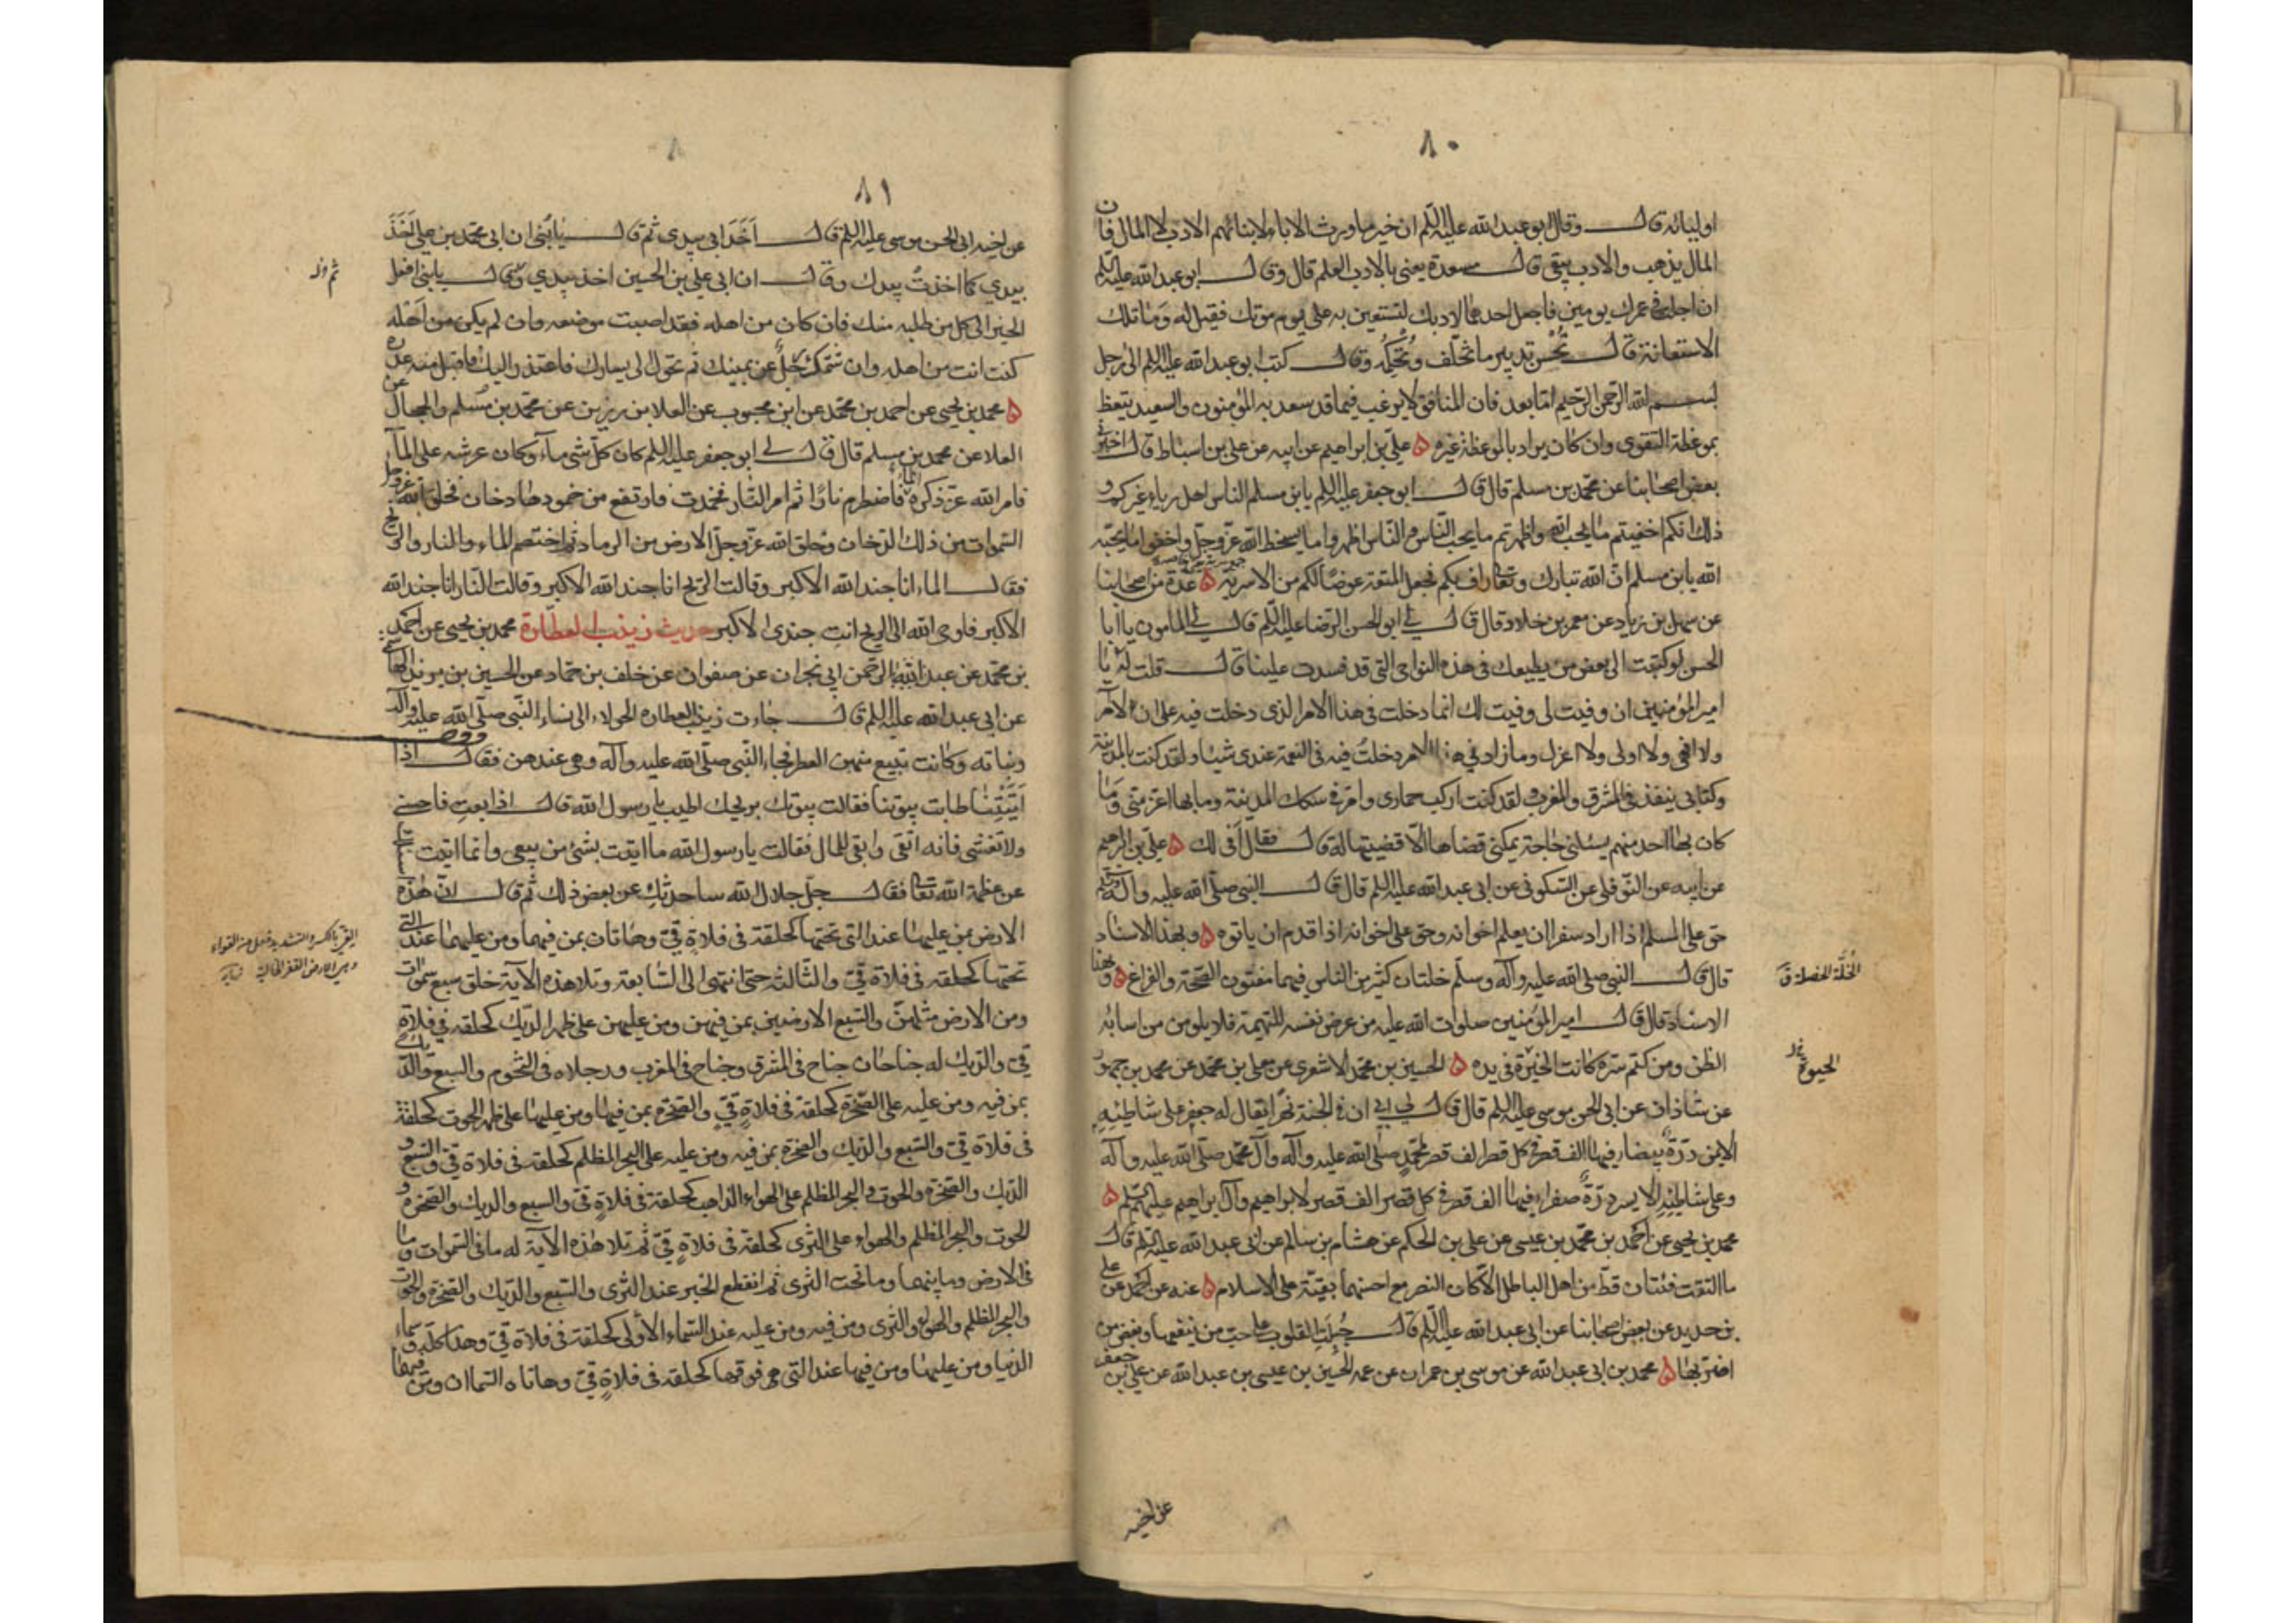 ٨٠
اوليائه قال وقال ابو عبد الله عليه السلم ان خير ما ورث الاباء لابنائهم الادب لا المال فان
المال يذهب والادب يبقى قال مسعدة يعنى بالادب العلم قال وقال ابو عبد الله عليه السلم
ان اجلت فى عمرك يومين فاجعل احدهما لادبك لتستعين به على يوم موتك فقيل له وما تلك
الاستعانة قال تحسن تدبير ما تخلف وتحكمه وقال كتب ابو عبد الله عليه السلم الى رجل
بسم الله الرحمن الرحيم اما بعد فان المنافق لا يرغب فيما قد سعد به المؤمنون والسعيد يتعظ
بموعظة التقوى وان كان يراد بالموعظة غيره ۵ على بن ابراهيم عن ابيه عن على بن اسباط قال اخبرنى
بعض اصحابنا عن محمد بن مسلم قال قال ابو جعفر عليه السلم يابن مسلم الناس اهل رياء غيركم و
ذلك انكم اخفيتم ما يحب الله واظهرتم ما يحب الناس والناس اظهروا ما يسخط الله عز وجل واخفوا ما يحبه
الله يابن مسلم ان الله تبارك وتعالى راف بكم فجعل المتعة عوضا لكم من الاشربة ۵ عدة من اصحابنا
عن سهل بن زياد عن معمر بن خلاد قال قال لى ابو الحسن الرضا عليه السلم قال لى المامون يا ابا
الحسن لو كتبت الى بعض من يطيعك فى هذه النواحى التى قد فسدت علينا قال قلت له يا
امير المؤمنين ان وفيت لى وفيت لك انما دخلت فى هذا الامر الذى دخلت فيه على ان لا آمر
ولا انهى ولا اولى ولا اعزل وما زادنى هذا الامر دخلت فيه فى النعمة عندى شيئا ولقد كنت بالمدينة
وكتابى ينفذ فى المشرق والمغرب ولقد كنت اركب حمارى وامر فى سكك المدينة وما بها اعز منى وما
كان بها احد منهم يسئلنى حاجة يمكننى قضاها الا قضيتها له قال فقال لى افى لك ۵ على بن ابراهيم
عن ابيه عن النوفلى عن السكونى عن ابى عبد الله عليه السلم قال قال النبى صلى الله عليه وآله وسلم
حق على المسلم اذا اراد سفرا ان يعلم اخوانه وحق على اخوانه اذا قدم ان ياتوه ۵ وبهذا الاسناد
قال قال النبى صلى الله عليه وآله وسلم خلتان كثير من الناس فيهما مفتون الصحة والفراغ ۵ وبهذا
الاسناد قال قال امير المؤمنين صلوات الله عليه من عرض نفسه للتهمة فلا يلومن من اساء به
الظن ومن كتم سره كانت الخيرة فى يده ۵ الحسين بن محمد الاشعرى عن معلى بن محمد عن محمد بن جمهور
عن شاذان عن ابى الحسن موسى عليه السلم قال قال لى ابى ان فى الجنة نهرا يقال له جعفر على شاطئه
الايمن درة بيضاء فيها الف قصر فى كل قصر الف قصر لمحمد صلى الله عليه وآله وآل محمد صلى الله عليه وآله
وعلى شاطئه الايسر درة صفراء فيها الف قصر فى كل قصر الف قصر لابراهيم وآل ابراهيم عليهم السلم ۵
محمد بن يحيى عن احمد بن محمد بن عيسى عن على بن الحكم عن هشام بن سالم عن ابى عبد الله عليه السلم قال
ما التقت فئتان قط من اهل الباطل الا كان النصر مع احسنهما بقية على الاسلام ۵ عنه عن احمد عن على
بن حديد عن بعض اصحابنا عن ابى عبد الله عليه السلم قال جبلت القلوب على حب من ينفعها وبغض من
اضر بها ۵ محمد بن ابى عبد الله عن موسى بن عمران عن عمه الحسين بن عيسى بن عبد الله عن على بن جعفر
الخلة الخصلة ق
الحيوة
عن اخيه
٨١
عن اخيه ابى الحسن موسى عليه السلم قال اخذ ابى بيدى ثم قال يا بنى ان ابى محمد بن على اخذ
بيدي كما اخذت بيدك وقال ان ابى على بن الحسين اخذ بيدي وقال يا بنى افعل
الخير الى كل من طلبه منك فان كان من اهله فقد اصبت موضعه وان لم يكن من اهله
كنت انت من اهله وان شتمك رجل عن يمينك ثم تحول الى يسارك فاعتذر اليك فاقبل منه عذره
۵ محمد بن يحيى عن احمد بن محمد عن ابن محبوب عن العلا بن رزين عن محمد بن مسلم والحجال عن
العلا عن محمد بن مسلم قال قال لى ابو جعفر عليه السلم كان كل شى ماء وكان عرشه على الماء
فامر الله عز ذكره الماء فاضطرم نارا ثم امر النار فخمدت فارتفع من خمودها دخان فخلق الله عز وجل
السموات من ذلك الدخان وخلق الله عز وجل الارض من الرماد ثم اختصم الماء والنار والريح
فقال الماء انا جند الله الاكبر وقالت الريح انا جند الله الاكبر وقالت النار انا جند الله
الاكبر فاوحى الله الى الريح انت جندى الاكبر حديث زينب العطارة محمد بن يحيى عن احمد
بن محمد عن عبد الرحمن ابى نجران عن صفوان عن خلف بن حماد عن الحسين بن يزيد الهاشمى
عن ابى عبد الله عليه السلم قال جاءت زينب العطارة الحولاء الى نساء النبى صلى الله عليه وآله
وبناته وكانت تبيع منهن العطر فجاء النبى صلى الله عليه وآله وهى عندهن فقال اذا
اتيتنا طابت بيوتنا فقالت بيوتك بريحك اطيب يا رسول الله قال اذا بعت فاحسنى
ولا تغشى فانه اتقى وابقى للمال فقالت يا رسول الله ما اتيت بشئ من بيعى وانما اتيت
عن عظمة الله تعالى فقال جل جلال الله ساحدثك عن بعض ذلك ثم قال ان هذه
الارض بمن عليها عند التى تحتها كحلقة فى فلاة قى وهاتان بمن فيهما ومن عليهما عند التى
تحتها كحلقة فى فلاة قى والثالثة حتى انتهى الى السابعة وتلا هذه الآية خلق سبع سموات
ومن الارض مثلهن والسبع الارضين بمن فيهن ومن عليهن على ظهر الديك كحلقة فى فلاة
قى والديك له جناحان جناح فى المشرق وجناح فى المغرب ورجلاه فى التخوم والسبع والديك
بمن فيه ومن عليه على الصخرة كحلقة فى فلاة قى والصخرة بمن فيها ومن عليها على ظهر الحوت كحلقة
فى فلاة قى والسبع والديك والصخرة بمن فيه ومن عليه على البحر المظلم كحلقة فى فلاة قى والسبع و
الديك والصخرة والحوت والبحر المظلم على الهواء الذاهب كحلقة فى فلاة قى والسبع والديك والصخرة و
الحوت والبحر المظلم والهواء على الثرى كحلقة فى فلاة قى ثم تلا هذه الآية له ما فى السموات وما
فى الارض وما بينهما وما تحت الثرى ثم انقطع الخبر عند الثرى والسبع والديك والصخرة والحوت
والبحر المظلم والهواء والثرى ومن فيه ومن عليه عند السماء الاولى كحلقة فى فلاة قى وهذا كله وسماء
الدنيا ومن عليها ومن فيها عند التى هى فوقها كحلقة فى فلاة قى وهاتان السماان ومن فيهما
القى بالكسر والتشديد فعل من القواء
وهى الارض القفر الخالية نهاية